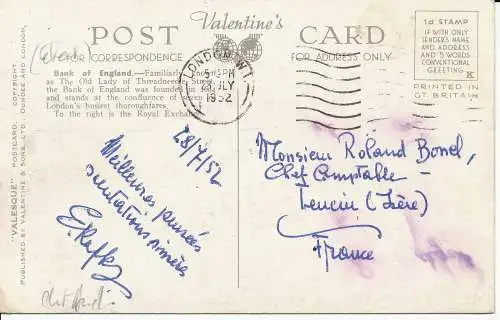 POST Valentine's CARD
FOR CORRESPONDENCE
FOR ADDRESS ONLY
1d STAMP
IF WITH ONLY
SENDER'S NAME
AND ADDRESS
AND 5 WORDS
CONVENTIONAL
GREETING
K
PRINTED IN
GT. BRITAIN
LONDON. W.1
PM
JLY
1952
Bank of England.—Familiarly
as The Old Lady of Threadneedle Street,
the Bank of England was founded in
and stands at the confluence of seven of
London's busiest thoroughfares.
To the right is the Royal Exchange
"VALESQUE" POSTCARD. COPYRIGHT.
PUBLISHED BY VALENTINE & SONS, LTD., DUNDEE AND LONDON.
28/7/52
Meilleures pensées
Monsieur Roland Bonel,
Chef Comptable –
(Isère)
France